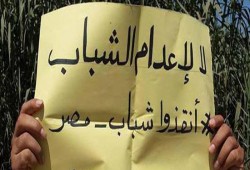 لا لإعدام الشباب
# أنقذوا شباب - مصر